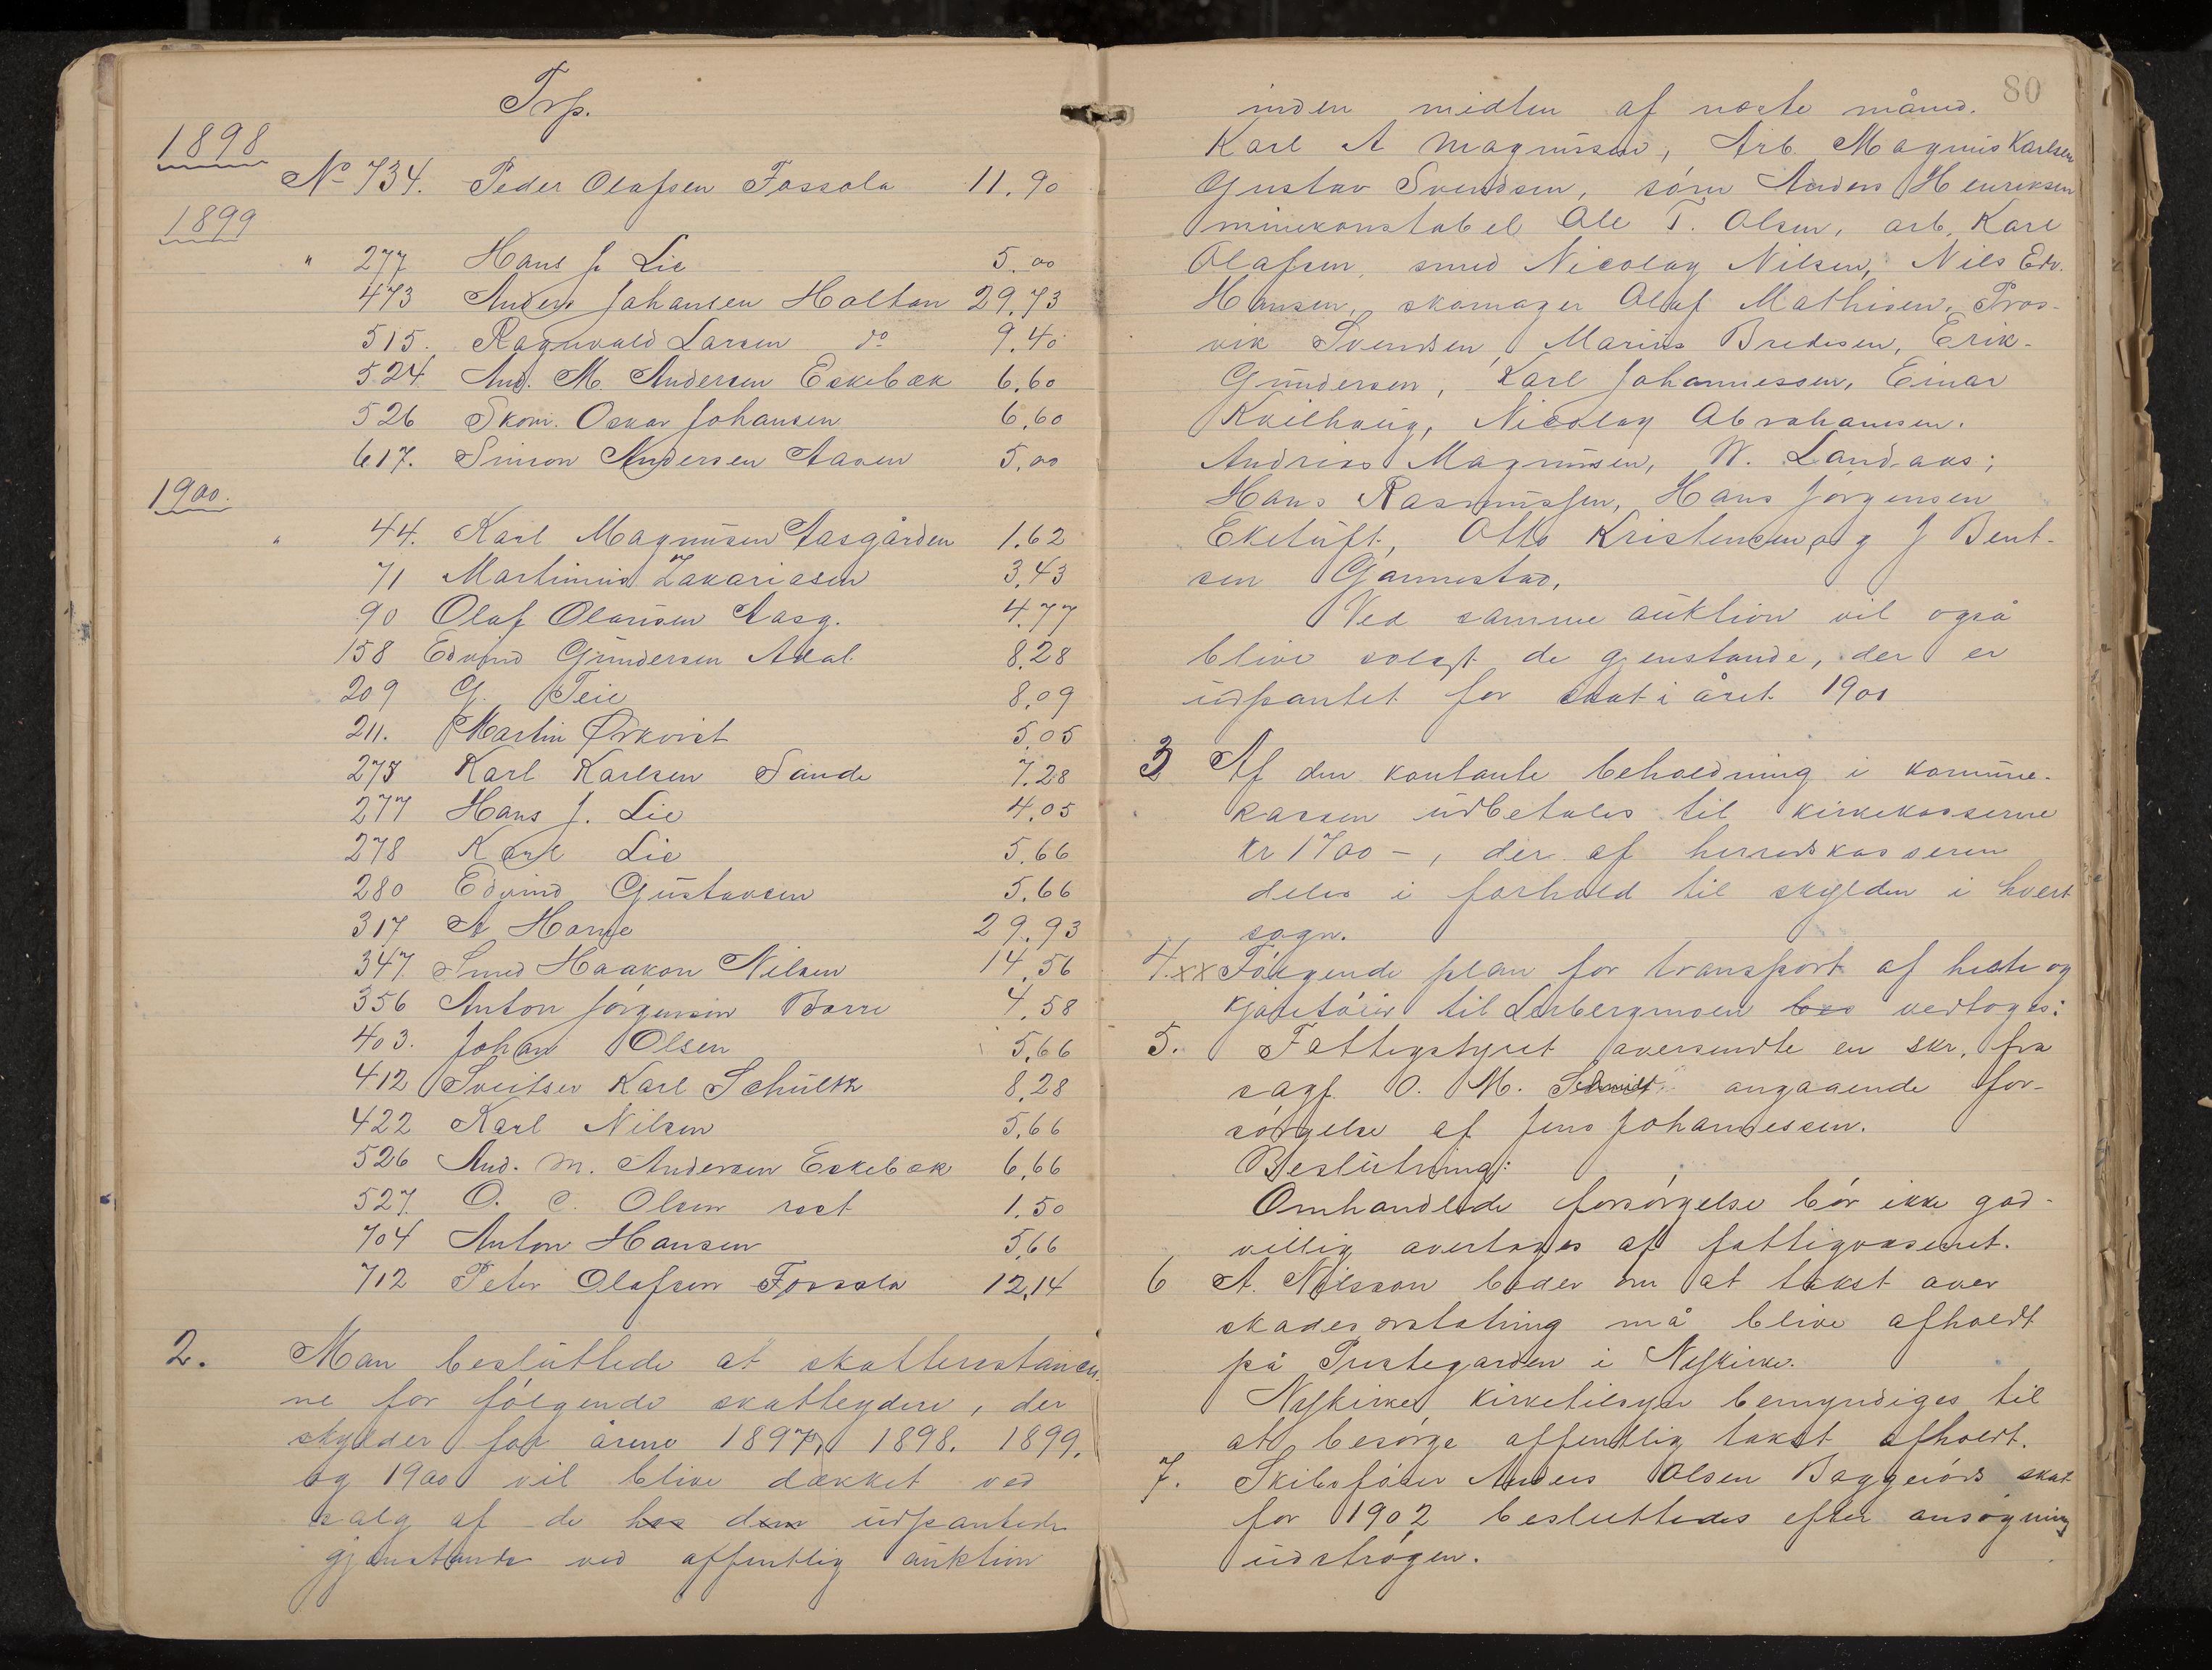 Trp.
1898
No 734. Peder Olafsen Fossola 11.90
1899
" 277 Hans J. Lie 5.00
473 Anders Johansen Holtan 29.73
515. Ragnvald Larsen do 9.40
524 And. M. Andersen Eskebæk 6.60
526 Skom. Oskar Johansen 6.60
617. Simon Andersen Aasen 5,00
1900.
" 44. Karl Magnusen Aasgården 1.62
71 Martinius Zakariasen 3,43
90 Olaf Olausen Aasg. 4.77
158 Edvind Gundersen Adal. 8.28
209 G. Teie 8,09
211. Martin Ørkvist 5.05
275 Karl Karlsen Sande 7.28
277 Hans J. Lie 4,05
278 Karl Lie 5.66
280 Edvind Gustavsen 5.66
317 A Horne 29.93
347. Smed Haakon Nilsen 14,56
356 Anton Jörgensen Borre 4,58
403. Johan Olsen 5,66
412 Sveitser Karl Schultz 8,28
422 Karl Nilsen 5,66
526 And. M. Andersen Eskebæk 6,66
527. O. C. Olsen rest 1.50
704 Anton Hansen 5,66
712 Peter Olafsen Fossola 12,14
2. Man besluttede at skatterestancer-
ne for følgende skatteydere, der
skylder for årene 1897, 1898. 1899.
og 1900 vil blive dækket ved
salg af de hos dem udpantede
gjenstande ved offentlig auktion
80
inden midten af næste måned.
Karl A Magnussen, Arb. Magnus Karlsen
Gustav Svendsen, sóm Anders Henriksen
minekonstabel Ole T. Olsen, arb. Karl
Olafsen, smed Nicolay Nilsen, Nils Edv.
Hansen, skomager Olaf Mathisen, Pros-
vik Svendsen, Marius Bredesen, Erik
Gundersen, Karl Johannessen, Einar
Kvilhaug, Nicolay Abrahamsen.
Andreas Magnusen, W. Landaas;
Hans Rasmussen, Hans Jørgensen
Eketuft, Otto Kristensen og J Bent-
sen Gannestad.
Ved samme auktion vil også
blive solgt de gjenstande, der er
udpantet for skat i året 1901
3 Af den kontante beholdning i kommune-
kassen udbetales til kirkekasserne
kr 1700 -, der af herredskasseren
deles i forhold til skylden i hvert
sogn.
4.xx Følgende plan for transport af heste og
kjøretøier til Lerbergmoen bes vedtoges:
5. Fattigstyret oversendte en skr. fra
sagf. O. M. Schmidt angaaende for-
sørgelse af Jens Johannessen.
Beslutning:
Omhandlede forsørgelse bør ikke god-
villig overtages af fattigvæsenet.
6 A. Nilsson beder om at takst over
skadeserstatning må blive afholdt
på Prestegarden i Nykirke.
Nykirkes kirketilsyn bemyndiges til
at besørge offentlig takst afholdt.
7. Skibsfører Anders Olsen Baggerøds skat
for 1902 besluttedes efter ansøgning
udstrøgen.